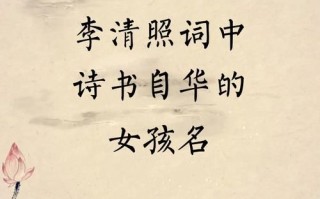 李清照词中
诗书自华的
女孩名